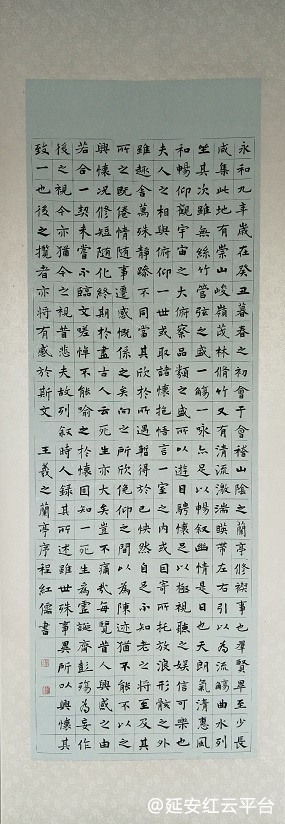 永和九年歲在癸丑暮春之初會于會稽山陰之蘭亭修禊事也羣賢畢至少長
咸集此地有崇山峻嶺茂林脩竹又有清流激湍暎帶左右引以為流觴曲水列
坐其次雖無絲竹管弦之盛一觴一詠亦足以暢敘幽情是日也天朗氣清惠風
和暢仰觀宇宙之大俯察品類之盛所以遊目騁懷足以極視聽之娛信可樂也
夫人之相與俯仰一世或取諸懷抱悟言一室之內或因寄所托放浪形骸之外
雖趣舍萬殊靜躁不同當其欣於所遇暫得於己快然自足不知老之將至及其
所之既倦情隨事遷感慨係之矣向之所欣俛仰之間以為陳迹猶不能不以之
興懷況修短隨化終期於盡古人云死生亦大矣豈不痛哉每覽昔人興感之由
若合一契未嘗不臨文嗟悼不能喻之於懷固知一死生為虛誕齊彭殤為妄作
後之視今亦猶今之視昔悲夫故列敘時人錄其所述雖世殊事異所以興懷其
致一也後之攬者亦將有感於斯文 王羲之蘭亭序程紅儒書
@延安红云平台